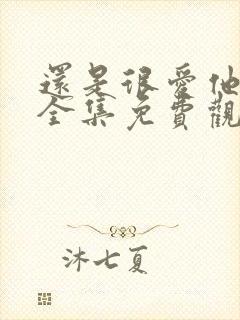 還是很愛他
全集免費觀
沐七夏